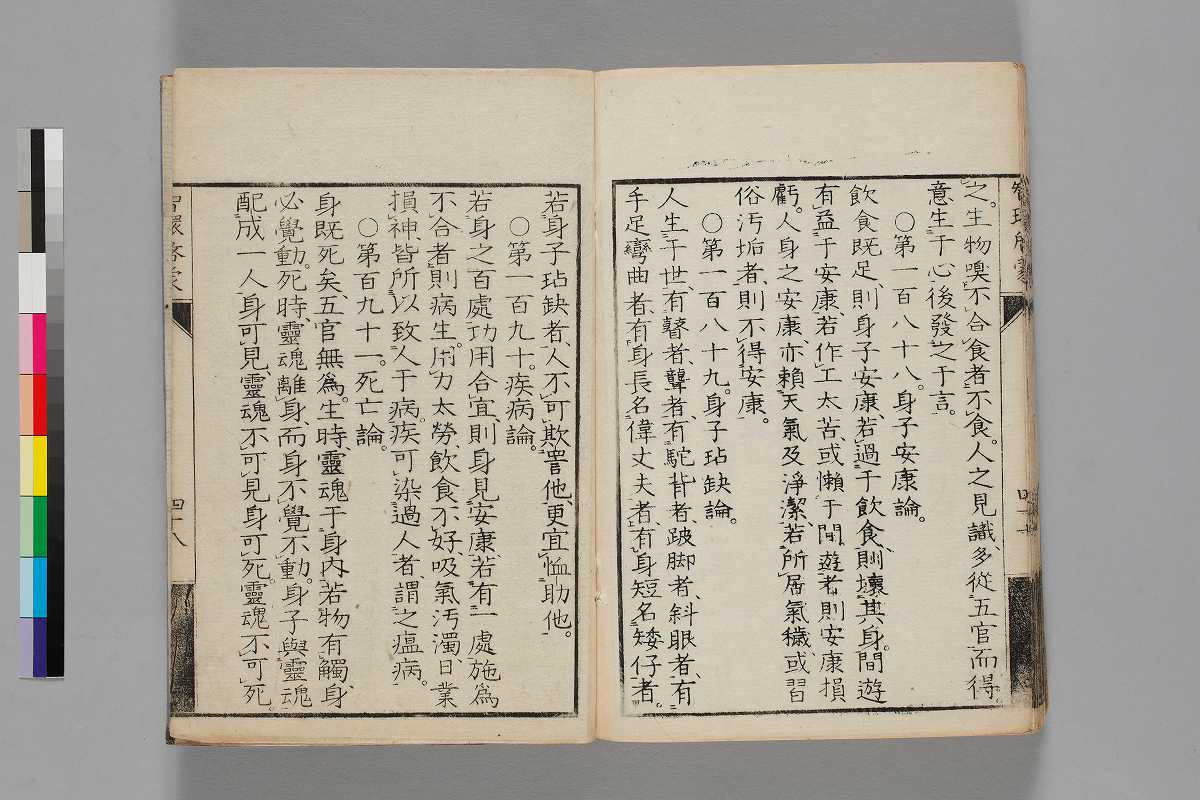 之。生物嗅不合食者不食。人之見識、多從五官而得。
意生于心、後發之于言。
○第一百八十八。身子安康論。
飲食既足、則身子安康、若過于飲食、則壞其身。間遊
有益于安康、若作工太苦、或懶于間遊者、則安康損
虧。人身之安康、亦賴天氣及淨潔、若所居氣穢、或習
俗汚垢者、則不得安康。
○第一百八十九。身子玷缺論。
人生于世、有瞽者、聾者、有駝背者、跛脚者、斜眼者、有
手足彎曲者、有身長名偉丈夫者、有身短名矮仔者。
若身子玷缺者、人不可欺詈他、更宜恤助他。
○第一百九十。疾病論。
若身之百處功用合宜、則身見安康、若有一處施爲
不合者、則病生。用力太勞、飲食不好、吸氣汚濁、日業
損神、皆所以致人于病。疾可染過人者、謂之瘟病。
○第百九十一。死亡論。
身既死矣、五官無爲。生時、靈魂于身內、若物有觸身、
必覺動。死時、靈魂離身而身不覺不動。身子與靈魂
配成一人、身可見、靈魂不可見、身可死。靈魂不可死。
智環啓蒙
四十八